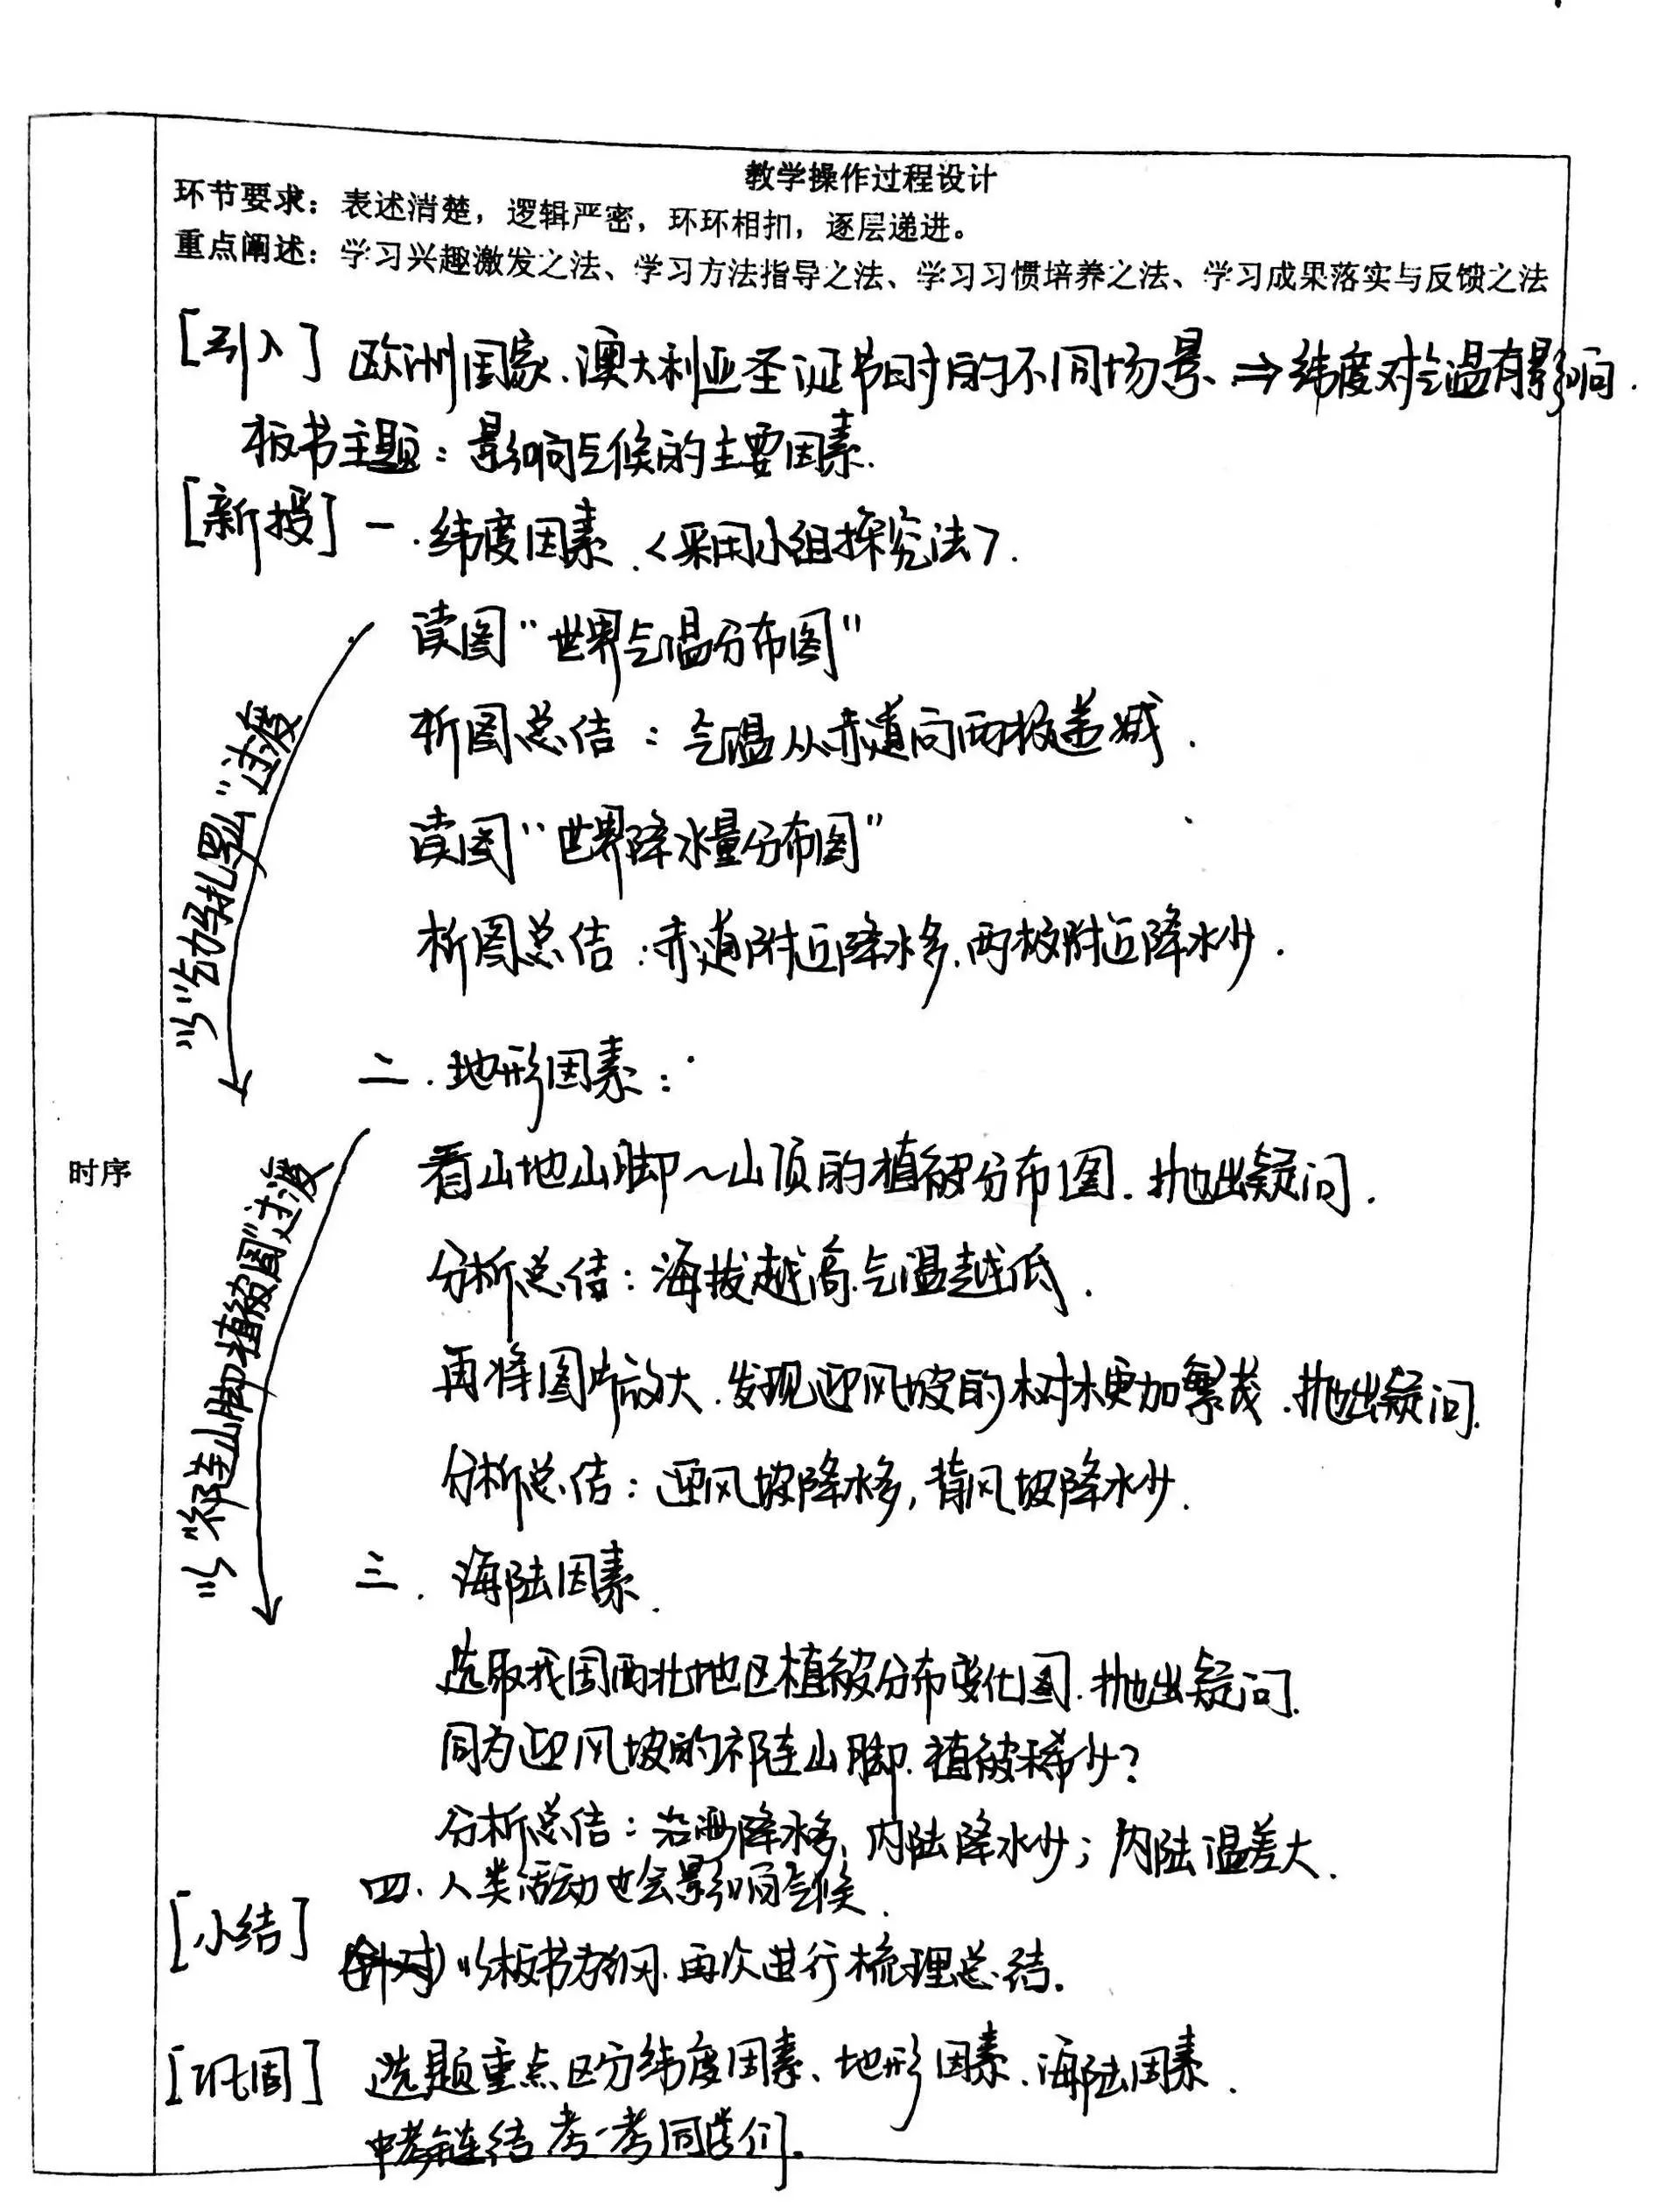 教学操作过程设计
环节要求：表述清楚，逻辑严密，环环相扣，逐层递进。
重点阐述：学习兴趣激发之法、学习方法指导之法、学习习惯培养之法、学习成果落实与反馈之法
[引入] 欧洲国家、澳大利亚圣诞节时的不同场景、⇒纬度对气温有影响.
板书主题：影响气候的主要因素.
[新授] 一.纬度因素.<采用小组探究法>.
读图"世界气温分布图"
析图总结：气温从赤道向两极递减.
读图"世界降水量分布图"
析图总结:赤道附近降水多,两极附近降水少.
以"乞力马扎罗山"过渡
二.地形因素：
时序
看山地山脚~山顶的植被分布图.抛出疑问.
分析总结：海拔越高.气温越低.
再将图片放大.发现迎风坡的树木更加繁茂.抛出疑问.
分析总结：迎风坡降水多,背风坡降水少.
以"祁连山脚植被图"过渡
三.海陆因素.
选取我国西北地区植被分布变化图.抛出疑问.
同为迎风坡的祁连山脚.植被稀少?
分析总结：沿海降水多,内陆降水少;内陆温差大.
四.人类活动也会影响气候.
[小结] 以板书为纲.再次进行梳理总结.
[巩固] 选题重点区分纬度因素、地形因素.海陆因素.
中考链结 考一考同学们.